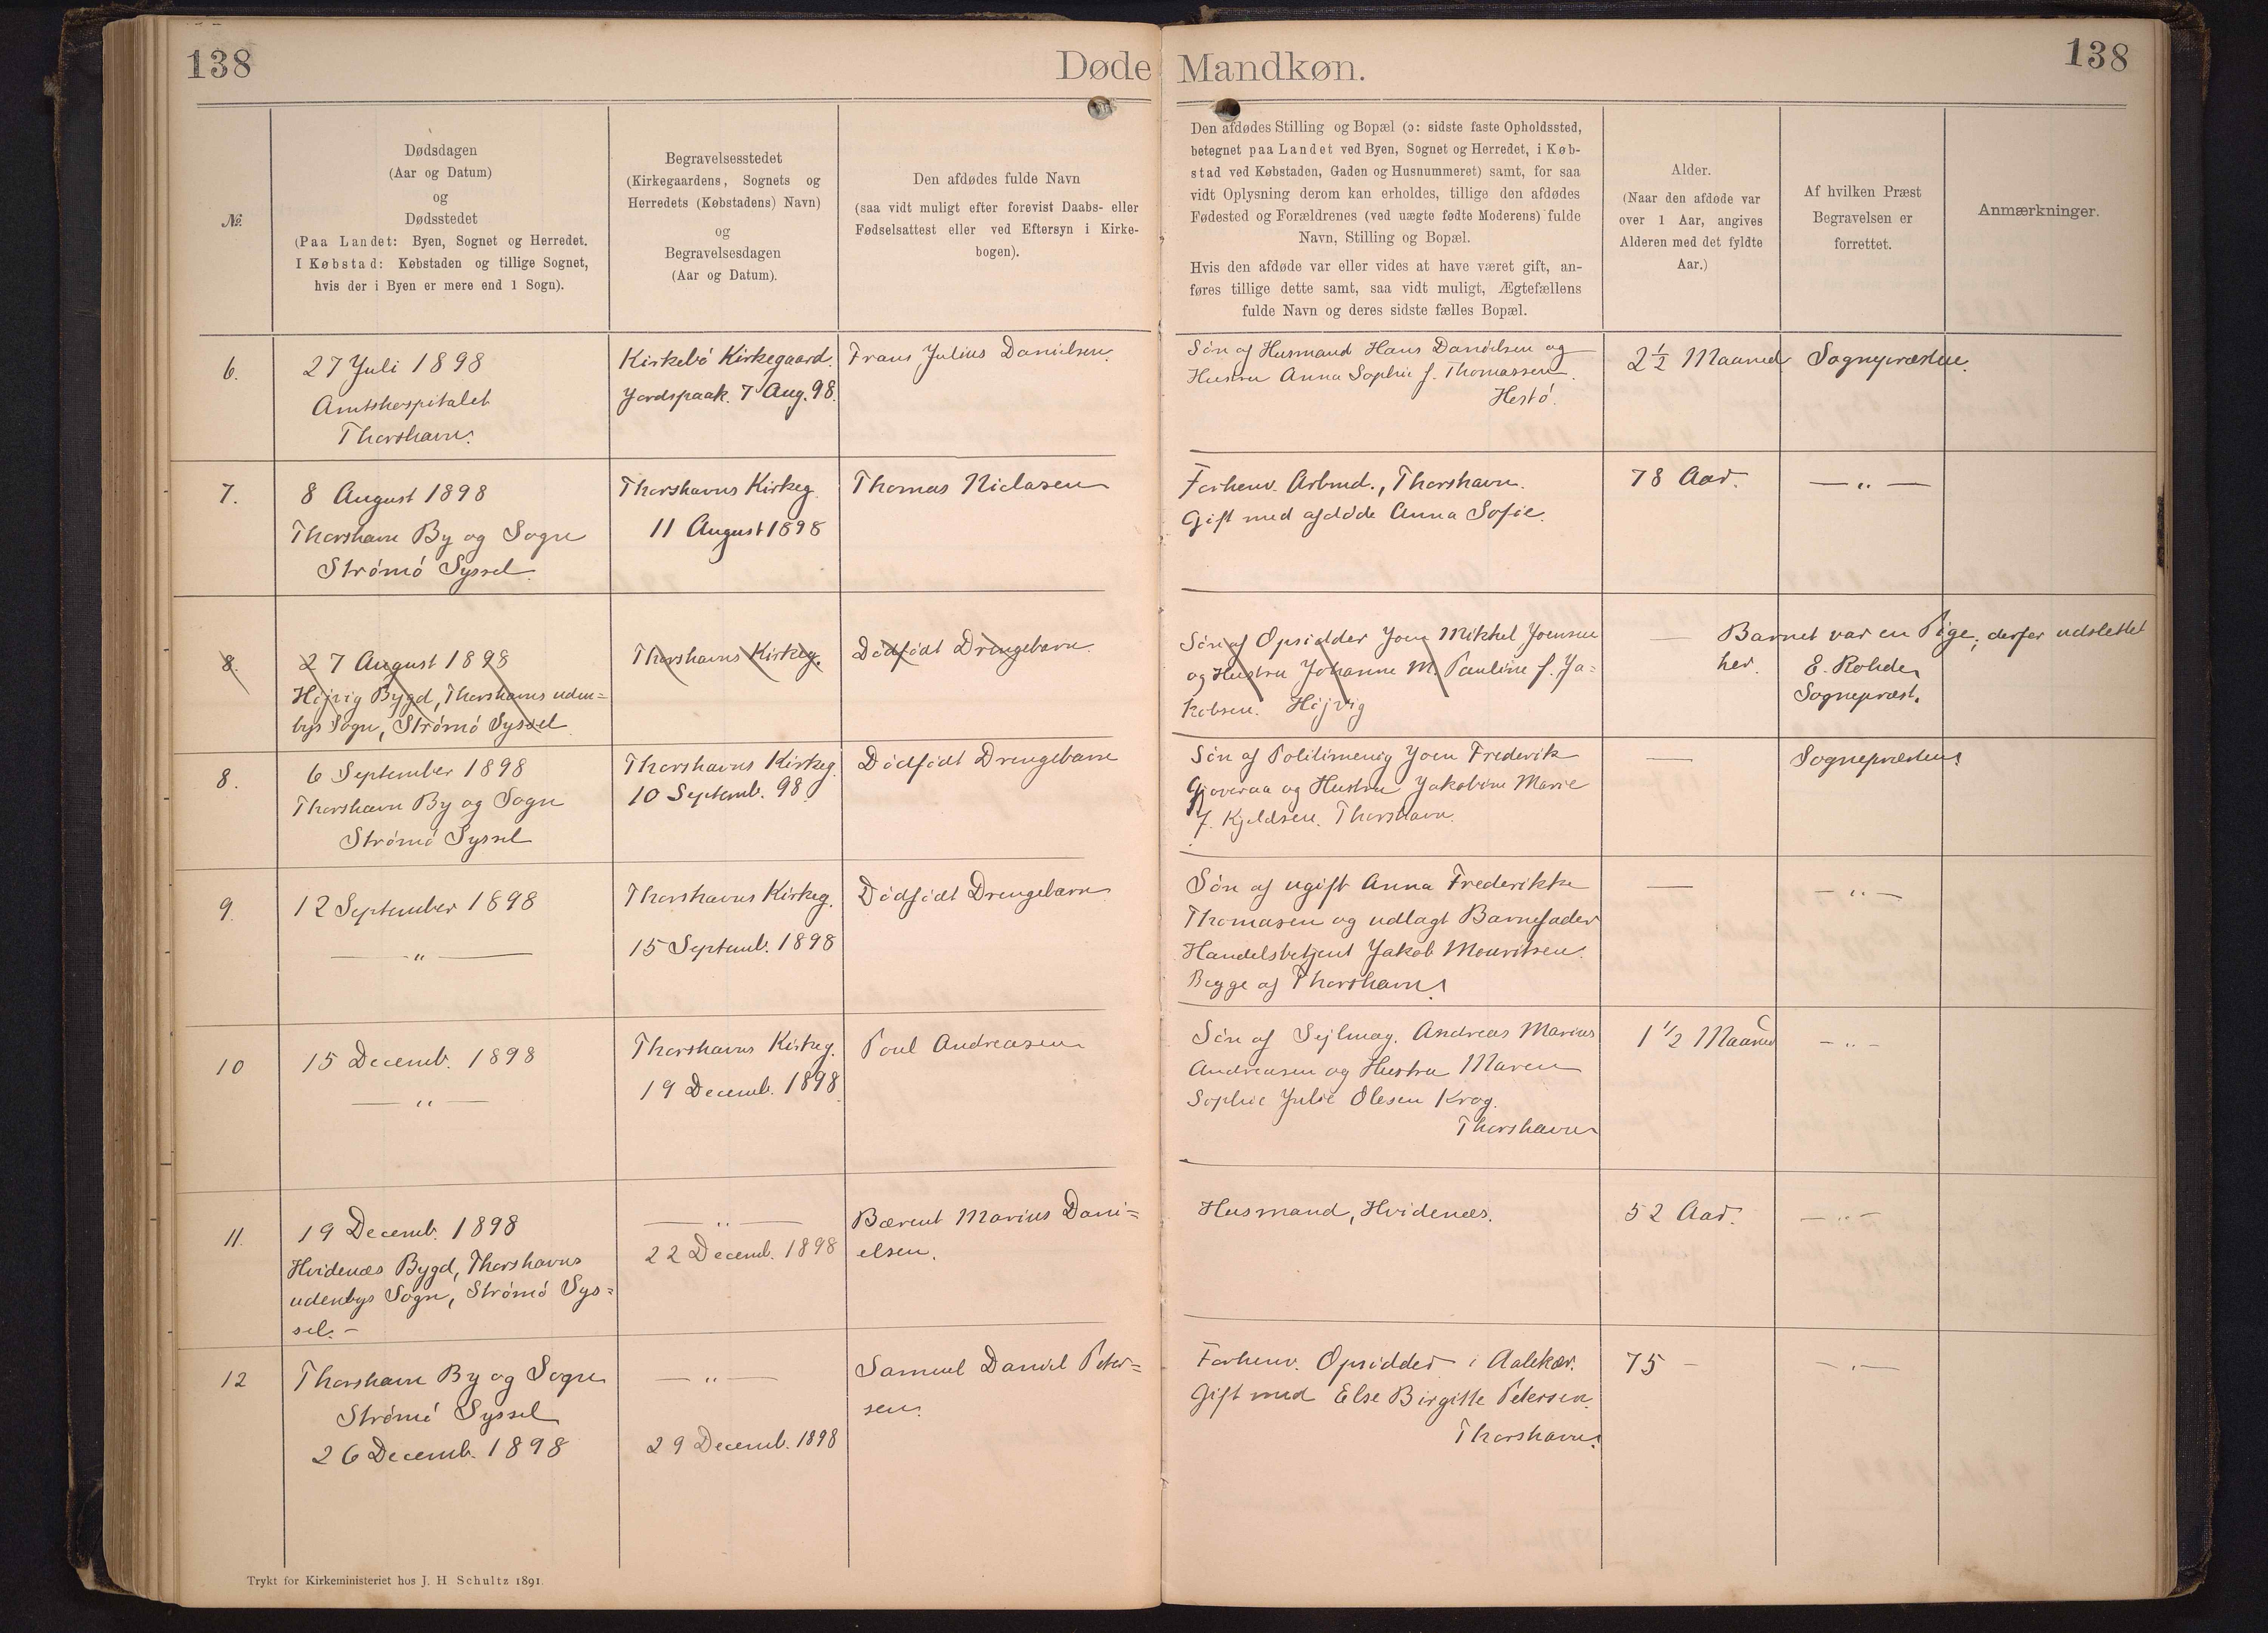 138
Døde Mandkøn.
138
№
Dødsdagen
(Aar og Datum)
og
Dødsstedet
(Paa Landet: Byen, Sognet og Herredet.
I Købstad: Købstaden og tillige Sognet,
hvis der i Byen er mere end 1 Sogn).
Begravelsesstedet
(Kirkegaardens, Sognets og
Herredets (Købstadens) Navn)
og
Begravelsesdagen
(Aar og Datum).
Den afdødes fulde Navn
(saa vidt muligt efter forevist Daabs- eller
Fødselsattest eller ved Eftersyn i Kirke-
bogen).
Den afdødes Stilling og Bopæl (ɔ: sidste faste Opholdssted,
betegnet paa Landet ved Byen, Sognet og Herredet, i Køb-
stad ved Købstaden, Gaden og Husnummeret) samt, for saa
vidt Oplysning derom kan erholdes, tillige den afdødes
Fødested og Forældrenes (ved uægte fødte Moderens) fulde
Navn, Stilling og Bopæl.
Hvis den afdøde var eller vides at have været gift, an-
føres tillige dette samt, saa vidt muligt, Ægtefællens
fulde Navn og deres sidste fælles Bopæl.
Alder.
(Naar den afdøde var
over 1 Aar, angives
Alderen med det fyldte
Aar.)
Af hvilken Præst
Begravelsen er
forrettet.
Anmærkninger.
6.
27 Juli 1898
Amtshospitalet
Thorshavn.
Kirkebö Kirkegaard.
Jordspaak. 7 Aug. 98.
Frans Julius Danielsen.
Sön af Husmand Hans Danielsen og
Hustru Anna Sophie f. Thomassen.
Hestö.
2½ Maaned
Sognepræsten.
7.
8 August 1898
Thorshavn By og Sogn
Strömö Syssel.
Thorshavns Kirkeg.
11 August 1898
Thomas Niclasen
Forhenv. Arbmd., Thorshavn.
Gift med afdöde Anna Sofie.
78 Aar.
— „ —
8.
27 August 1898
Höjvig Bygd, Thorshavns uden=
bys Sogn, Strömö Syssel
Thorshavns Kirkeg.
Dödfödt Drengebarn.
Sön af Opsidder Joen Mikkel Joensen
og Hustru Johanne M. Pauline f. Ja=
kobsen. Höjvig
—
Barnet var en Pige, derfor udslettet
her.
E. Rohde,
Sognepræst.
8.
6 September 1898
Thorshavn By og Sogn
Strömö Syssel
Thorshavns Kirkeg.
10 Septemb. 98.
Dödfödt Drengebarn
Sön af Politimenig Joen Frederik
Gjoveraa og Hustru Jakobine Marie
f. Kjeldsen. Thorshavn.
—
Sognepræsten.
9.
12 September 1898
— „ —
Thorshavns Kirkeg.
15 Septemb. 1898
Dödfödt Drengebarn
Sön af ugift Anna Frederikke
Thomasen og udlagt Barnefader
Handelsbetjent Jakob Mouritsen.
Begge af Thorshavn.
—
— „ —
10
15 Decemb. 1898
— „ —
Thorshavns Kirkeg.
19 Decemb. 1898.
Poul Andreasen
Sön af Sejlmag. Andreas Marius
Andreasen og Hustru Maren
Sophie Julie Olesen Krog.
Thorshavn
1 1/2 Maaned
— „ —
11.
19 Decemb. 1898
Hvidenæs Bygd, Thorshavns
udenbys Sogn, Strömö Sys=
sel. –
— „ —
22 Decemb. 1898
Bærent Marius Dani=
elsen.
Husmand, Hvidenæs.
52 Aar.
— „ —
12
Thorshavn By og Sogn
Strömö Syssel
26 Decemb. 1898
— „ —
29 Decemb. 1898
Samuel Daniel Peter=
sen.
Forhenv. Opsidder i Aalekær.
Gift med Else Birgitte Petersen.
Thorshavn.
75 –
— „ —
Trykt for Kirkeministeriet hos J. H. Schultz 1891.